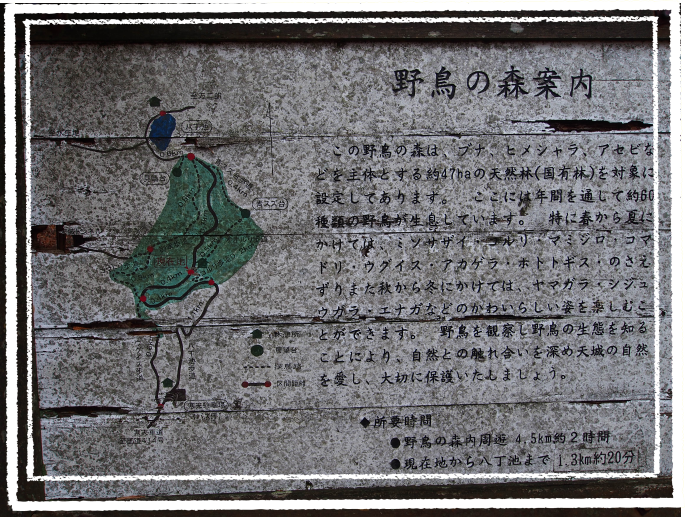 野鳥の森案内
この野鳥の森は、ブナ、ヒメシャラ、アセビな
どを主体とする約47haの天然林(国有林)を対象に
設定してあります。 ここには年間を通して約60
種類の野鳥が生息しています。 特に春から夏に
かけては、ミソサザイ・コルリ・マミジロ・コマ
ドリ・ウグイス・アカゲラ・ホトトギス・のさえ
ずりまた秋から冬にかけては、ヤマガラ・シジュ
ウガラ、エナガなどのかわいらしい姿を楽しむこ
とができます。 野鳥を観察し野鳥の生態を知る
ことにより、自然との触れ合いを深め天城の自然
を愛し、大切に保護いたしましょう。
◆所要時間
●野鳥の森内周遊 4.5km約2時間
●現在地から八丁池まで 1.3km約20分
八丁池
現在地
展望台
歩道
区間距離